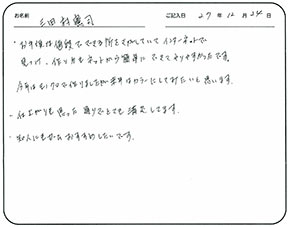 お名前 三田村 憲司 ご記入日 27年12月24日
・お手頃な価格でできる所をさがしていてインターネットで
見つけ、作り方もネットから簡単にできてよりやすかったです。
今年はモノクロで作りましたが来年はカラーにしてみたいと思います。
・仕上がりも思った通りでとても満足してます。
・知人にもぜひおすすめしたいです。